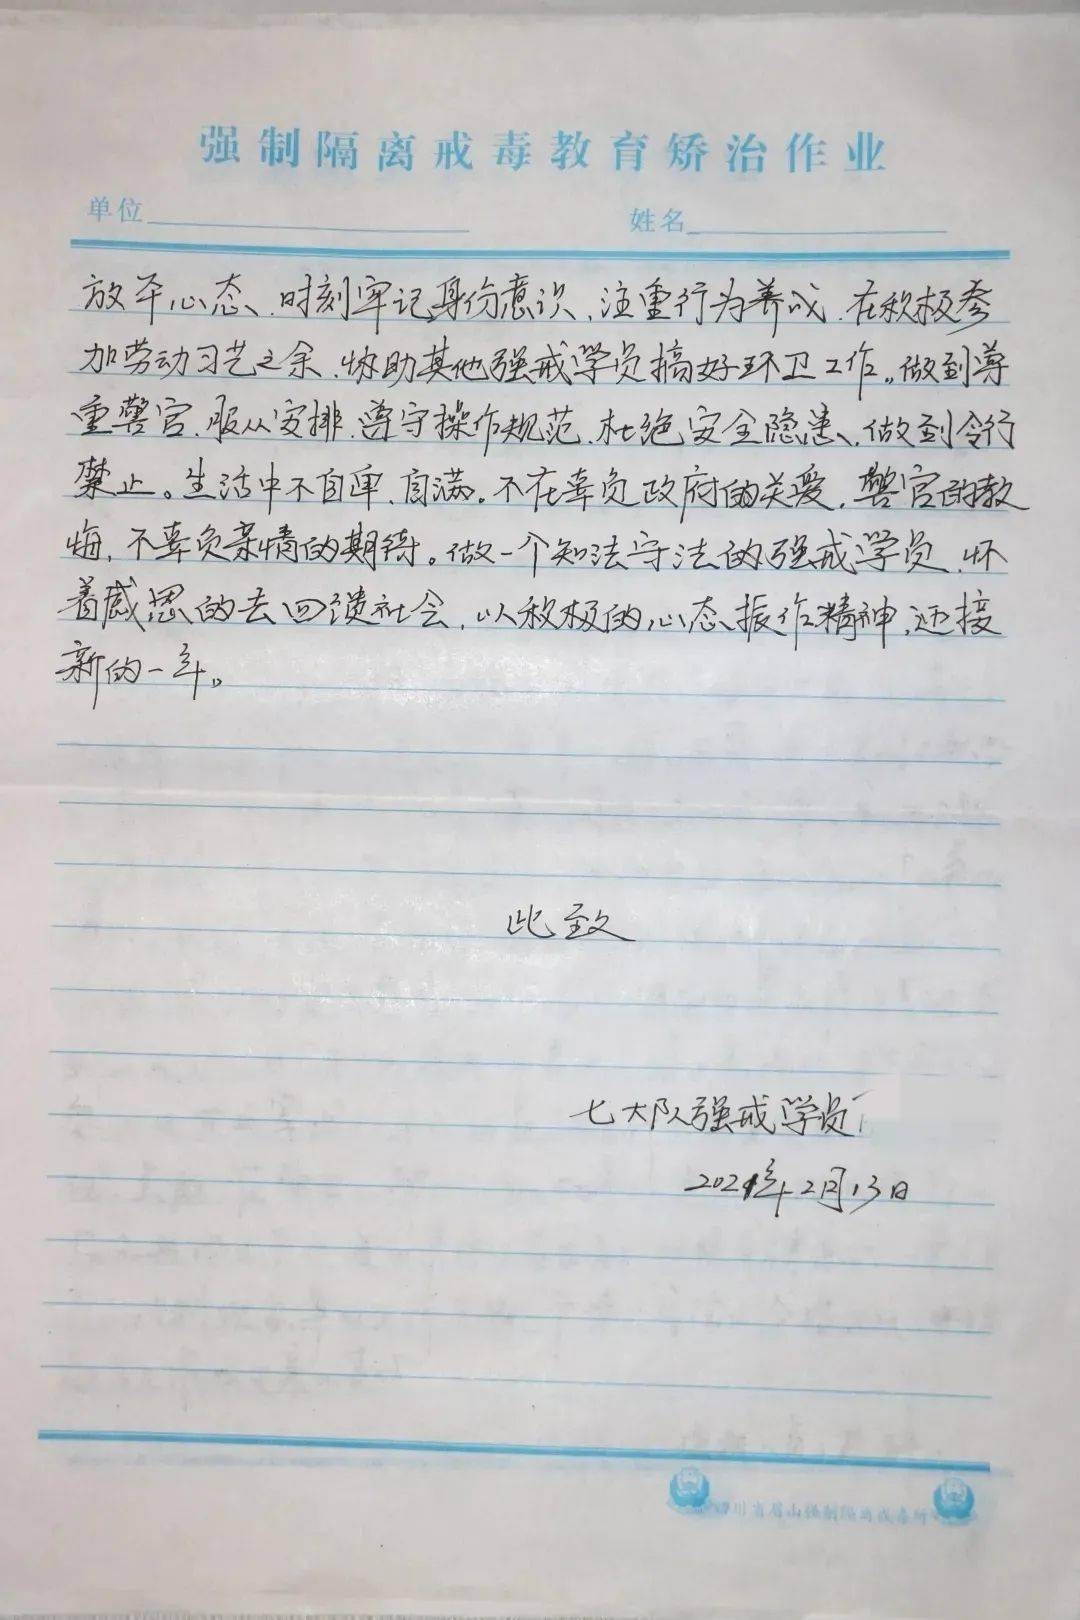 强制隔离戒毒教育矫治作业
单位 姓名
放平心态、时刻牢记身份意识、注重行为养成、在积极参
加劳动习艺之余、协助其他强戒学员搞好环卫工作。做到尊
重警官、服从安排、遵守操作规范、杜绝安全隐患、做到令行
禁止。生活中不自卑、自满。不在辜负政府的关爱、警官的教
悔、不辜负亲情的期待。做一个知法守法的强戒学员、怀
着感恩的去回馈社会、以积极的心态振作精神、迎接
新的一年。
此致
七大队强戒学员
2021年2月13日
四川省眉山强制隔离戒毒所